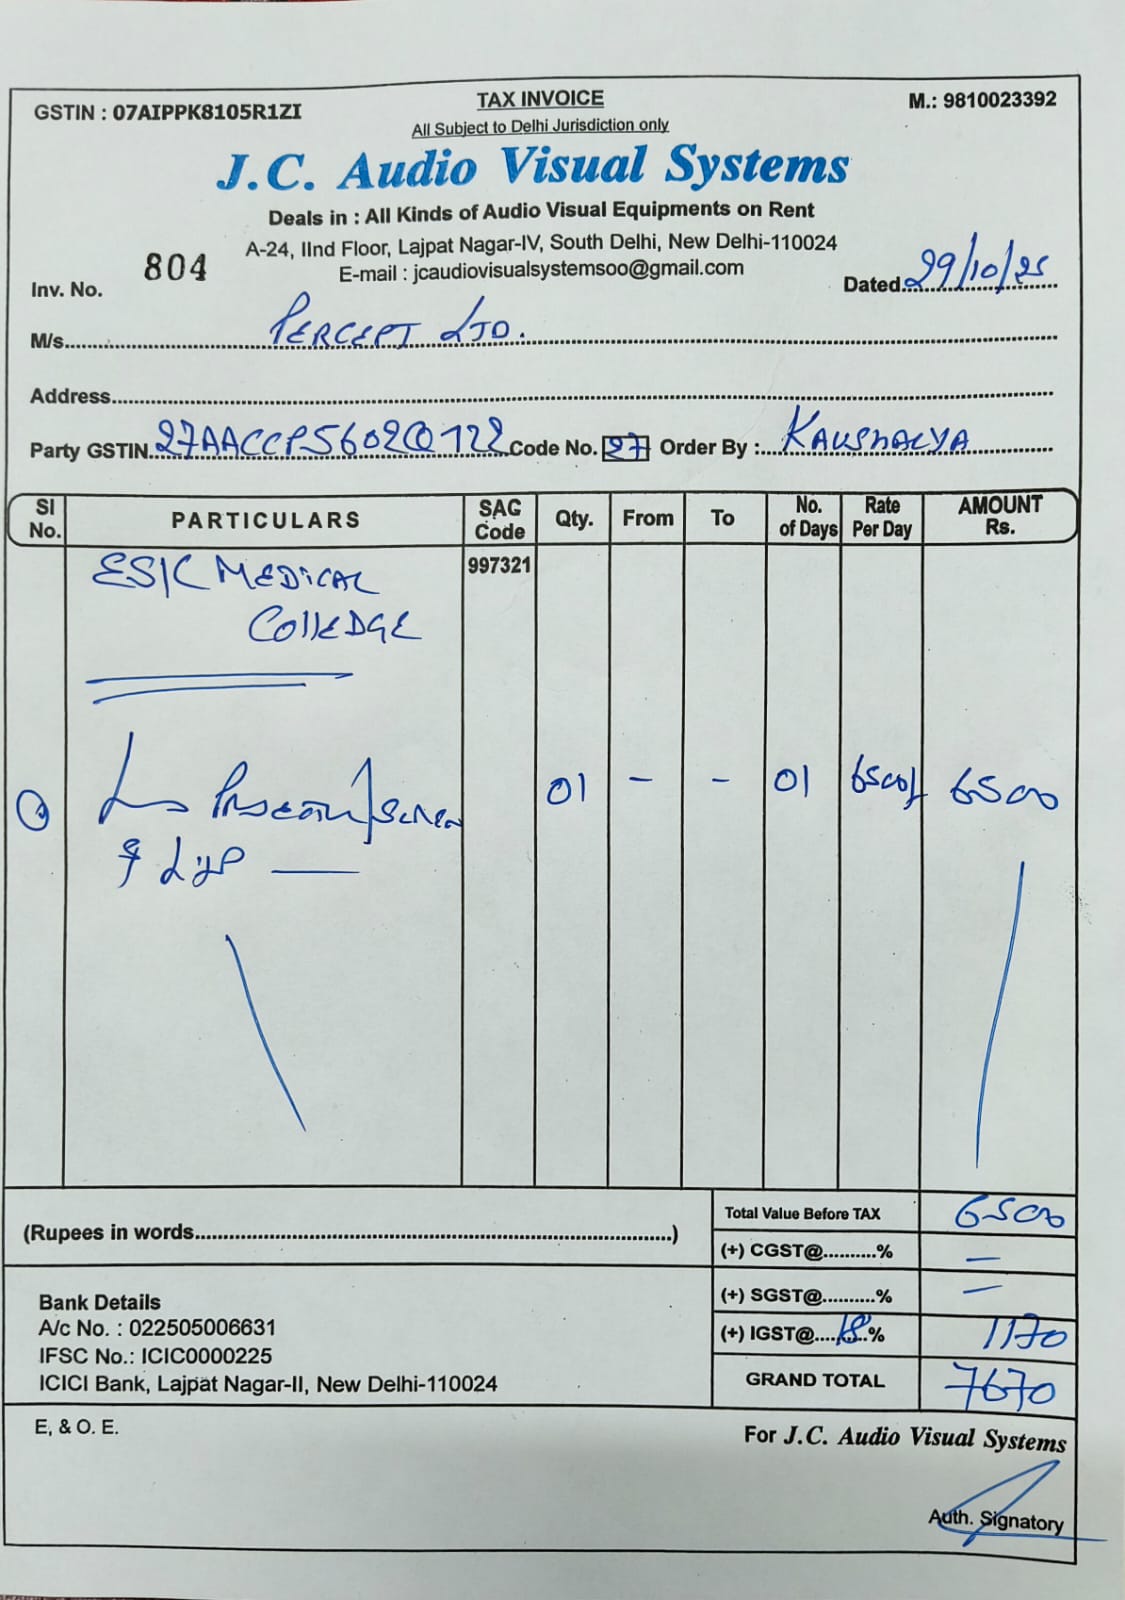 TAX INVOICE
GSTIN : 07AIPPK8105R1ZI
M.: 9810023392
All Subject to Delhi Jurisdiction only
J.C. Audio Visual Systems
Deals in : All Kinds of Audio Visual Equipments on Rent
A-24, IInd Floor, Lajpat Nagar-IV, South Delhi, New Delhi-110024
E-mail : jcaudiovisualsystemsoo@gmail.com
Inv. No. 804
Dated 29/10/25
M/s. PERCEPT LTD.
Address
Party GSTIN 27AACCP5602Q1ZZ Code No. 27 Order By : KAUSHALYA
SI No. PARTICULARS SAG Code Qty. From To No. of Days Rate Per Day AMOUNT Rs.
ESIC MEDICAL 997321
COllEDGE
Screen 01 - - 01 6500/ 6500
(Rupees in words)
Total Value Before TAX 6500
(+) CGST@..........% —
(+) SGST@..........% —
(+) IGST@....18..% 1170
GRAND TOTAL 7670
Bank Details
A/c No. : 022505006631
IFSC No.: ICIC0000225
ICICI Bank, Lajpat Nagar-II, New Delhi-110024
E, & O. E.
For J.C. Audio Visual Systems
Auth. Signatory